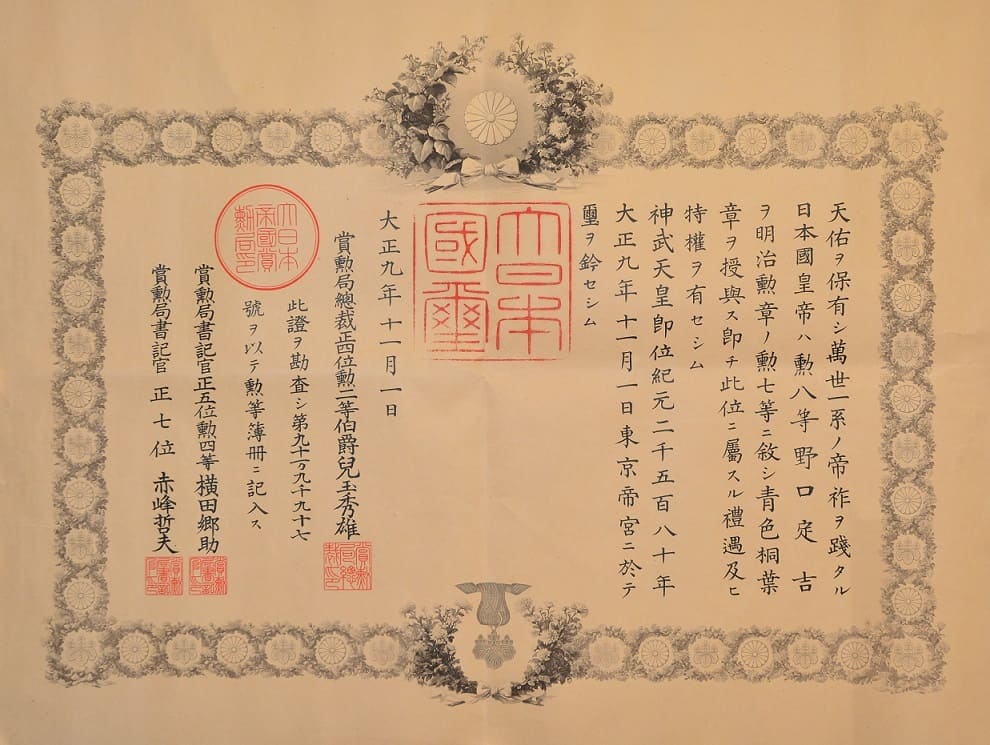 天佑ヲ保有シ萬世一系ノ帝祚ヲ踐タル
日本國皇帝ハ勲八等野口定吉
ヲ明治勲章ノ勲七等ニ敘シ青色桐葉
章ヲ授與ス即チ此位ニ屬スル禮遇及ヒ
特權ヲ有セシム
神武天皇即位紀元二千五百八十年
大正九年十一月一日東京帝宮ニ於テ
璽ヲ鈐セシム
大日本
國璽
大正九年十一月一日
賞勲局總裁正四位勲一等伯爵兒玉秀雄
賞勲局總裁之印
大日本
帝國賞
勲局印
此證ヲ勘査シ第九十一万九千九十七
號ヲ以テ勲等簿册ニ記入ス
賞勲局書記官正五位勲四等横田郷助
賞勲局書記官正七位赤峰哲夫